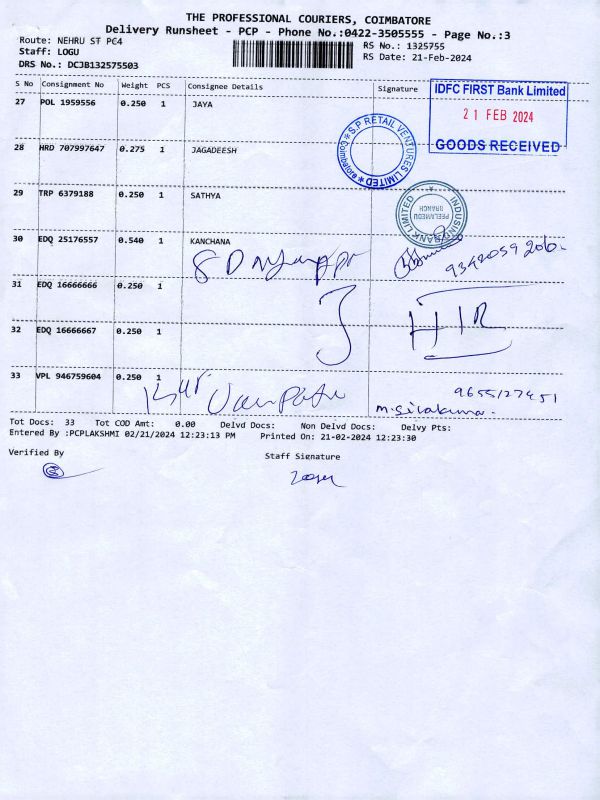 THE PROFESSIONAL COURIERS, COIMBATORE
Delivery Runsheet - PCP - Phone No.:0422-3505555 - Page No.:3
Route: NEHRU ST PC4
RS No.: 1325755
Staff: LOGU
RS Date: 21-Feb-2024
DRS No.: DCJB132575503
S No Consignment No Weight PCS Consignee Details Signature
IDFC FIRST Bank Limited
21 FEB 2024
GOODS RECEIVED
27 POL 1959556 0.250 1 JAYA
S.P RETAIL VENTURES LIMITED
Coimbatore
28 HRD 707997647 0.275 1 JAGADEESH
29 TRP 6379188 0.250 1 SATHYA
INDUSIND BANK LIMITED
PEELAMEDU
BRANCH
30 EDQ 25176557 0.540 1 KANCHANA
31 EDQ 16666666 0.250 1
32 EDQ 16666667 0.250 1
33 VPL 946759604 0.250 1
9655127451
Tot Docs: 33 Tot COD Amt: 0.00 Delvd Docs: Non Delvd Docs: Delvy Pts:
Entered By :PCPLAKSHMI 02/21/2024 12:23:13 PM Printed On: 21-02-2024 12:23:30
Verified By
Staff Signature